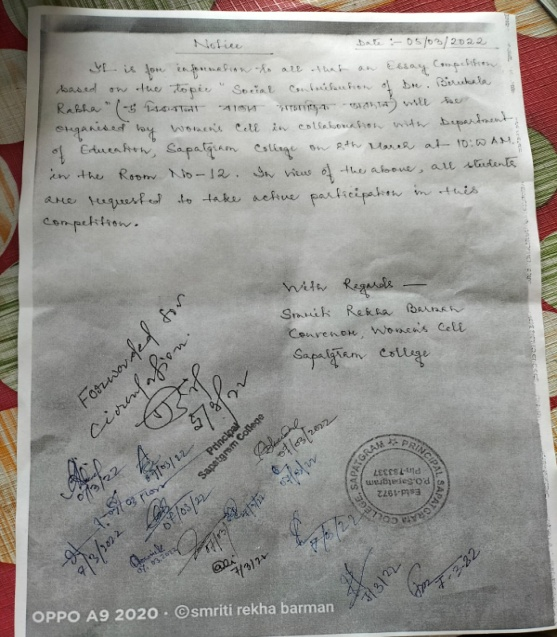 Notice
Date :- 05/03/2022
It is for information to all that an Essay Competition
based on the topic "Social Contribution of Dr. Birubala
Rabha" (ড° will be
organised by Women's Cell in collaboration with Department
of Education, Sapatgram College on 8th March at 10:00 A.M.
in the Room No-12. In view of the above, all students
are requested to take active participation in this
competition.
With Regards —
Smriti Rekha Barman
Convenor, Women's Cell
Sapatgram College
Forwarded for
circulation.
5/3/22
Principal
Sapatgram College
07/03/2022
07/3/22
07/03/22
07/03/22
9/3/2022
7/3/22
7/3/22
7-3-22
PRINCIPAL SAPATGRAM COLLEGE, SAPATGRAM
Estd-1972
P.O.Sapatgram
Pin-783337
OPPO A9 2020 · ©smriti rekha barman